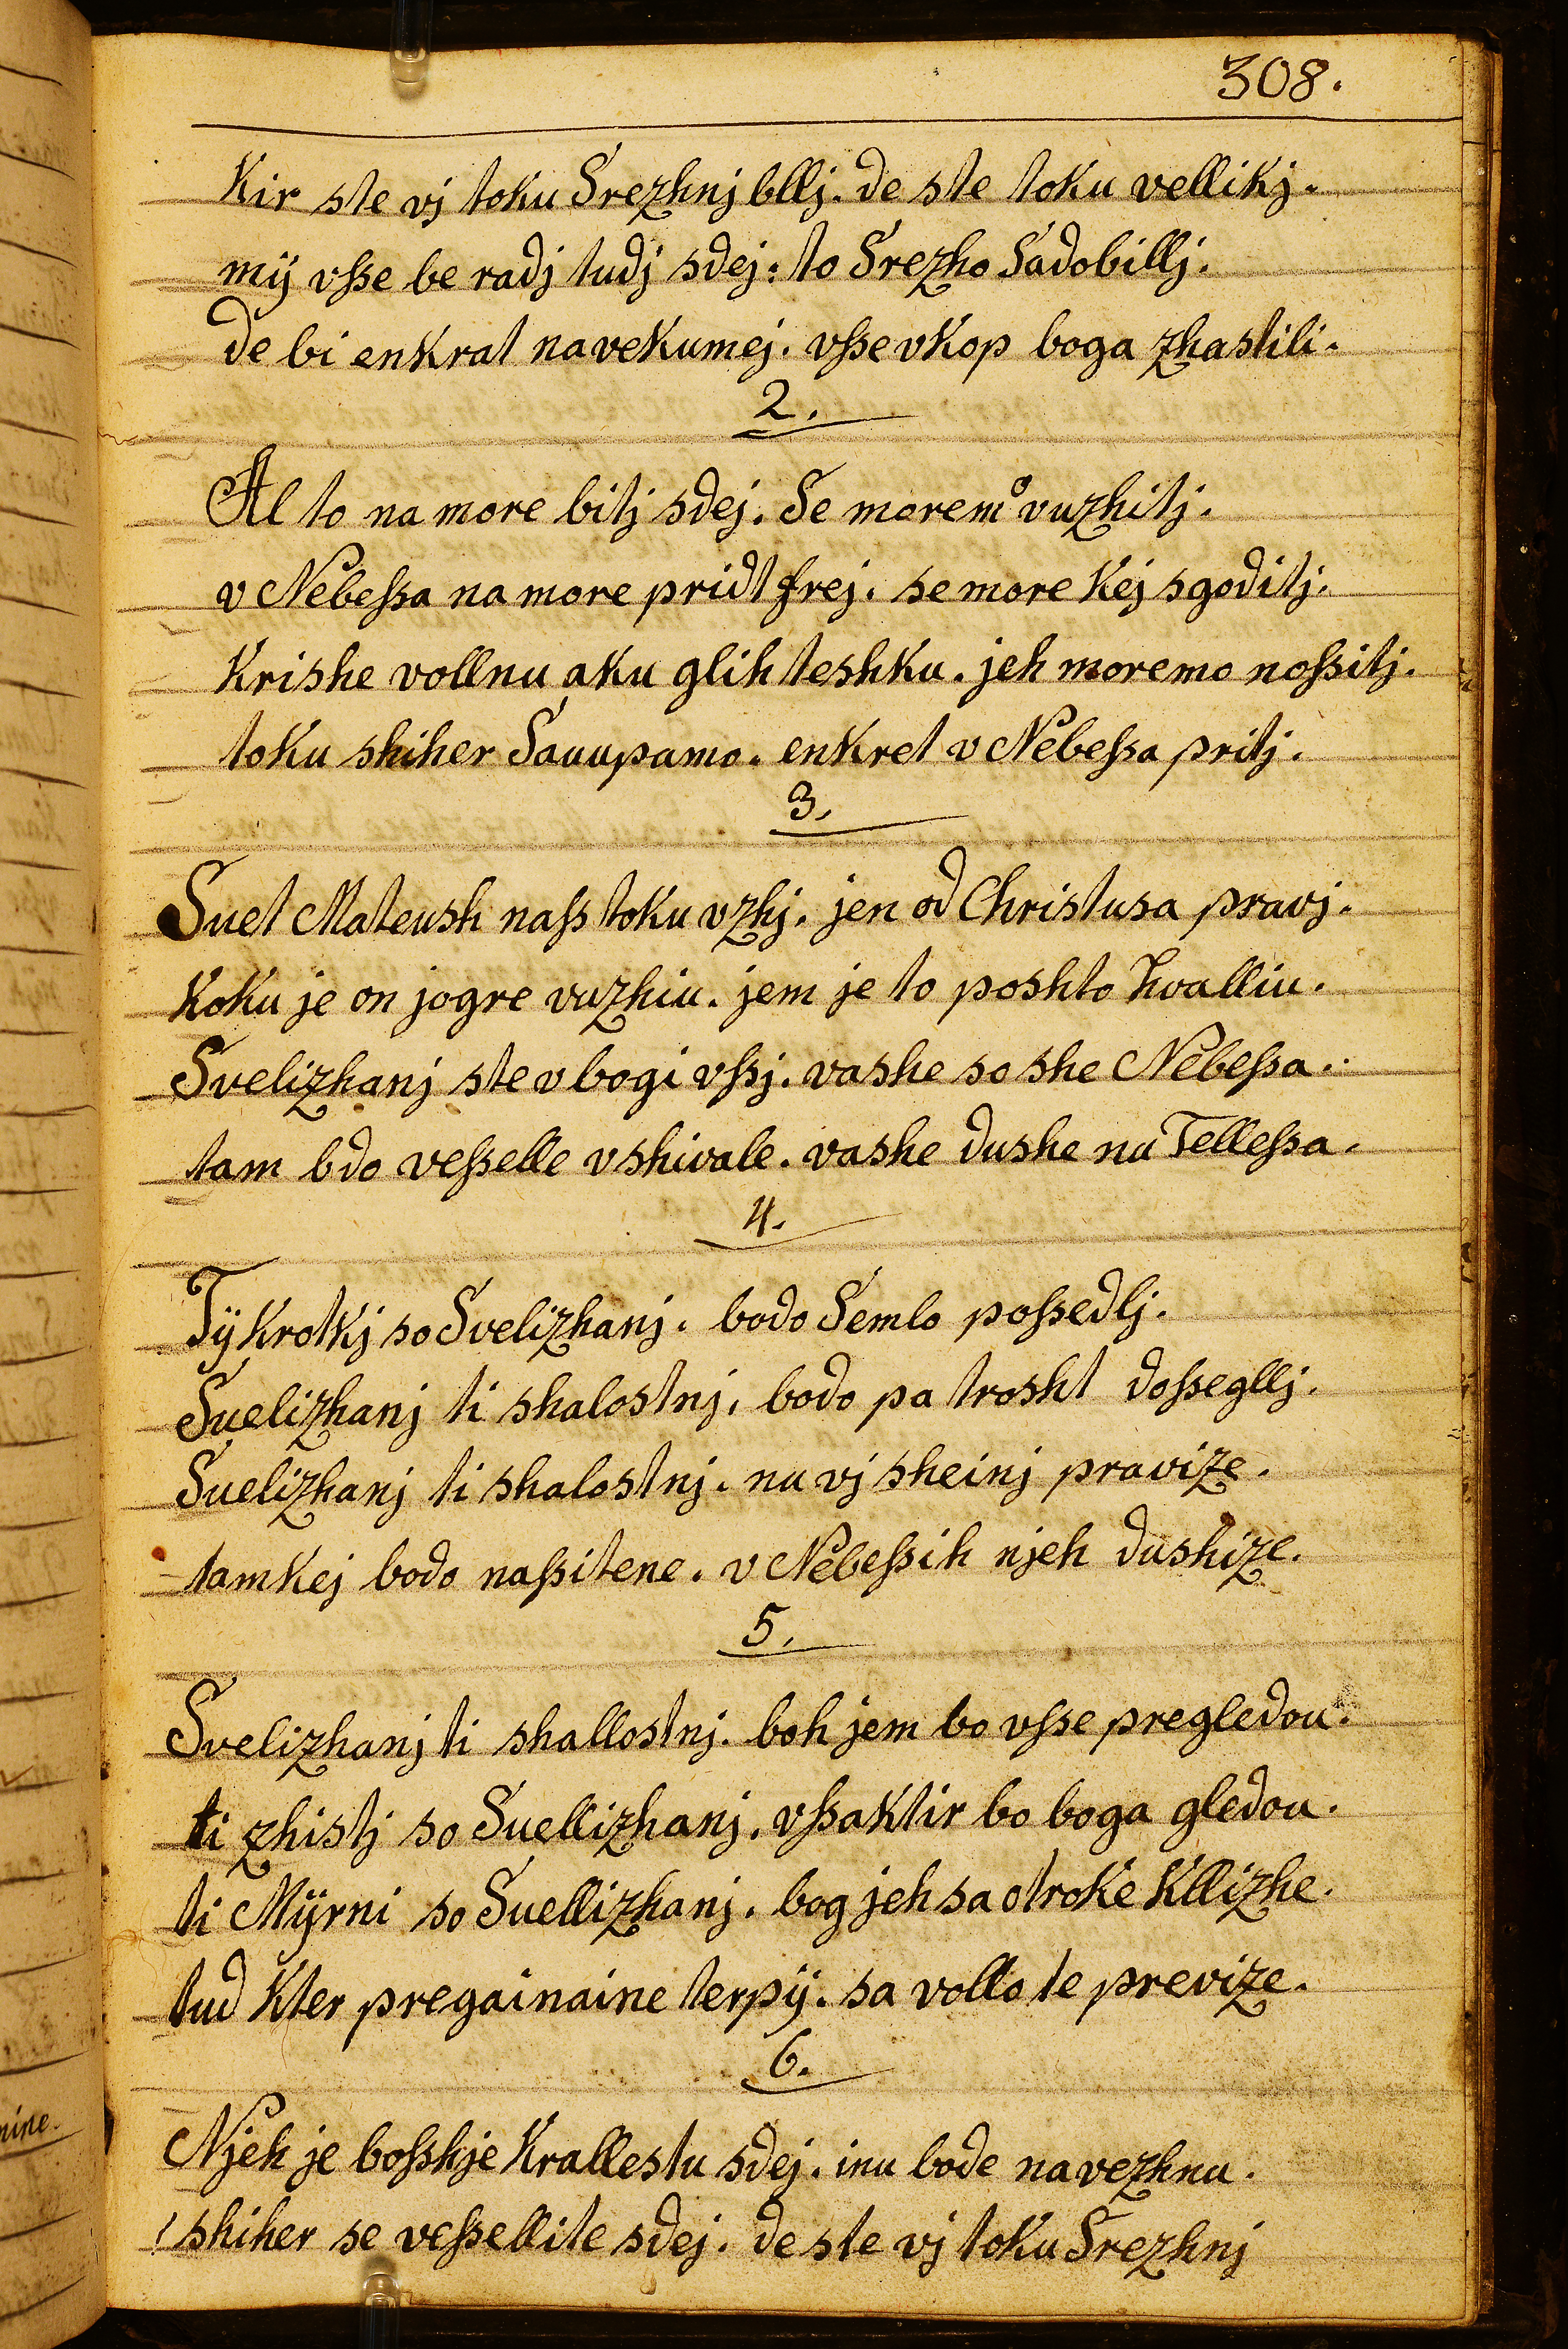 308.
Kir ste vj toku Srezhnj bllj. de ste toku vellikj.
mÿ vſse be radj tudj sdej: to Srezho Sadobillj.
de bi enkrat navekumej. vſse vkop boga zhastili.
2.
Al to na more bitj sdej. Se moremo vuzhitj.
v Nebeſsa na more pridt frej. se more kej sgoditj.
Krishe vollnu aku glih teshku. jeh moremo noſsitj.
toku shiher Sauupamo. enkret v Nebeſsa pritj.
3.
Suet Mateush naſs toku vzhj. jen od Christusa pravj.
Koku je on jogre vuzhiu. jem je to poshto hvalliu.
Svelizhanj ste vbogi vſsj. vashe so she Nebeſsa.
tam bdo veſselle vshivale. vashe dushe nu Telleſsa.
4.
Tÿ Krotkj so Svelizhanj. bodo Semlo poſsedlj.
Suelizhanj ti shalostnj. bodo pa trosht doſsegllj.
Suelizhanj ti shalostnj. nu vj sheinj pravize.
tamkej bodo naſsitene. v Nebeſsih njeh dushize.
5.
Svelizhanj ti shallostnj. boh jem bo vſse pregledou.
ti zhistj so Suellizhanj. vſsaktir bo boga gledou.
ti Mÿrni so Suellizhanj. bog jeh sa otroke Kllizhe.
tud Kter pregainaine terpÿ. sa vollo te previze.
6.
Njeh je boſshje Krallestu sdej. inu bode navezhnu.
shiher se veſsellite sdej. de ste vj toku Srezhnj
nine.